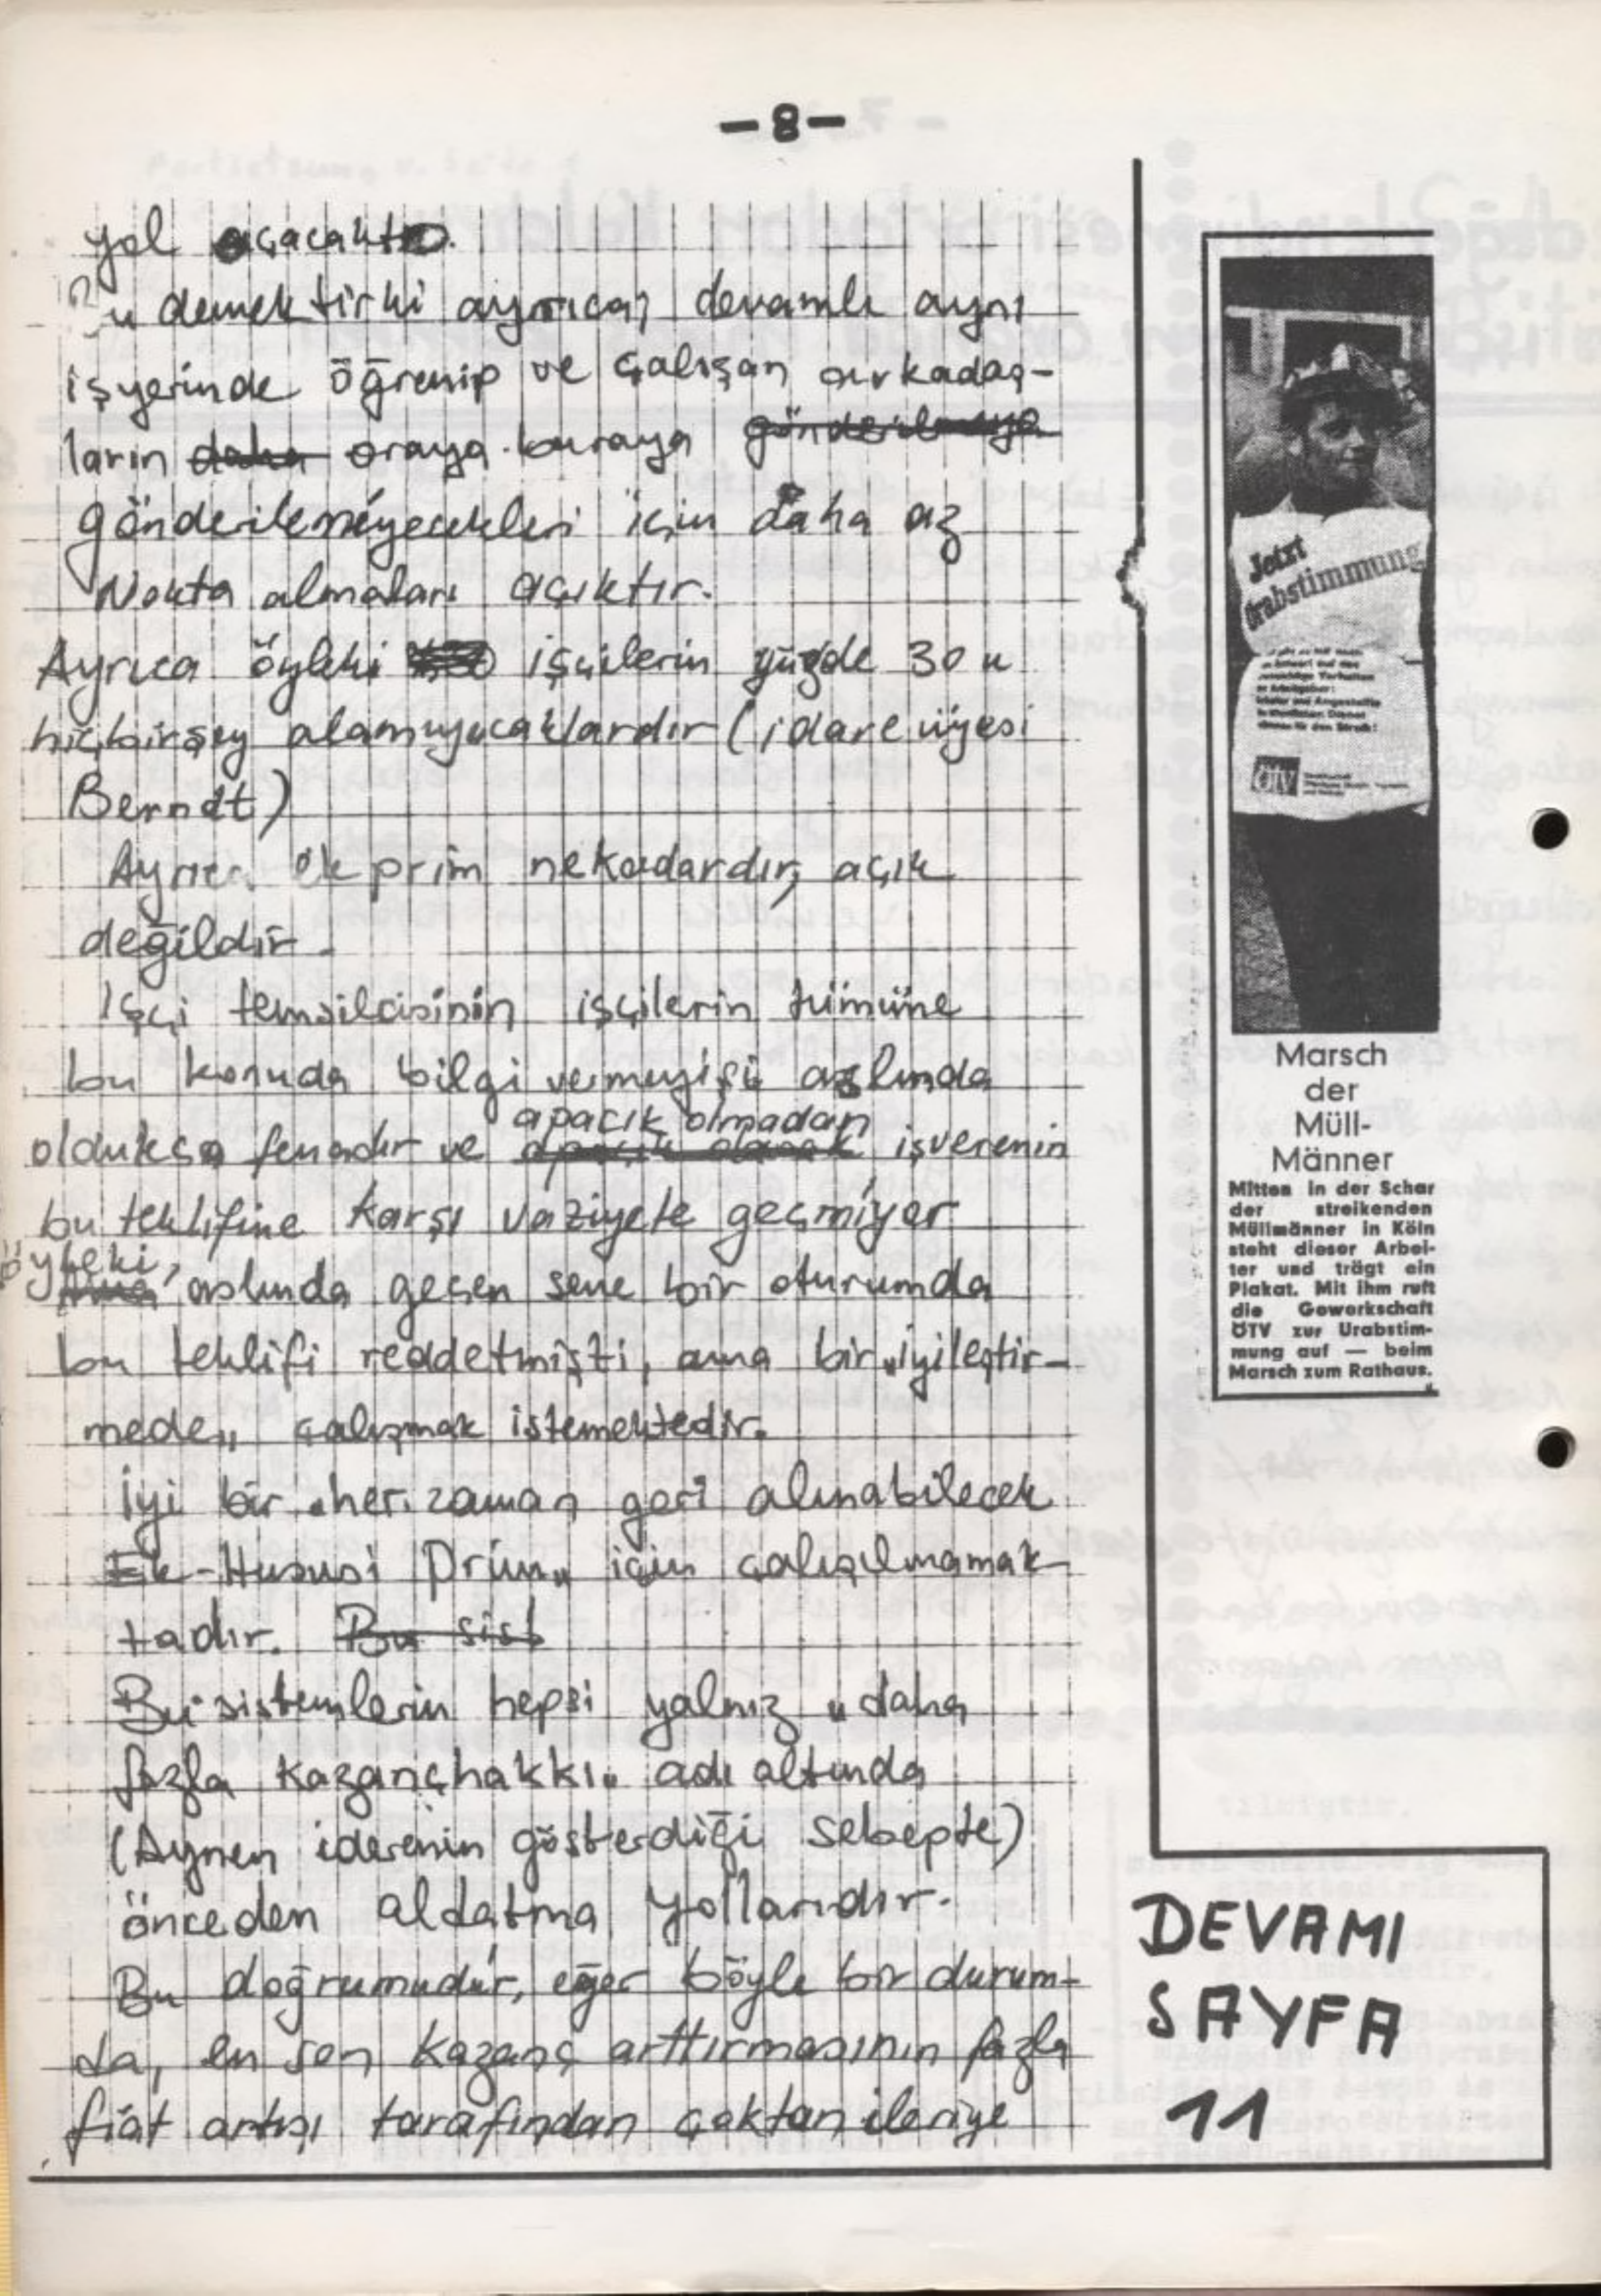 -8-
yol açacaktır.
Bu demektirki ayrıca; devamlı aynı
işyerinde öğrenip ve çalışan arkadaş-
ların daha oraya buraya gönderilmeye
gönderilemeyecekleri için daha az
Nokta almaları açıktır.
Ayrıca öyleki işçilerin yüzde 30 u
hiçbirşey alamıyacaklardır (idare üyesi
Berndt)
Ayrıca ek prim nekadardır, açık
değildir.
İşçi temsilcisinin işçilerin tümüne
bu konuda bilgi vermeyişi aslında
oldukca fenadır ve apaçık olarak apacık olmadan işverenin
bu teklifine karşı vaziyete geçmiyor
öyleki, Ama aslında geçen sene bir oturumda
bu teklifi reddetmişti, ama bir „iyileştir-
mede„ çalışmak istemektedir.
İyi bir „her zaman geri alınabilecek
Ek-Hususi Prim„ için çalışılmamak-
tadır. Bu sist
Bu sistemlerin hepsi yalnız „daha
fazla kazançhakkı„ adı altında
(Aynen iderenin gösterdiği sebepte)
önceden aldatma yollarıdır.
Bu doğrumudur, eğer böyle bir durum-
da, en son kazanç arttırmasının fazla
fiat artışı tarafından çoktan ileriye
Jetzt
Urabstimmung
ÖTV
Marsch
der
Müll-
Männer
Mitten in der Schar
der streikenden
Müllmänner in Köln
steht dieser Arbei-
ter und trägt ein
Plakat. Mit ihm ruft
die Gewerkschaft
ÖTV zur Urabstim-
mung auf — beim
Marsch zum Rathaus.
DEVAMI
SAYFA
11